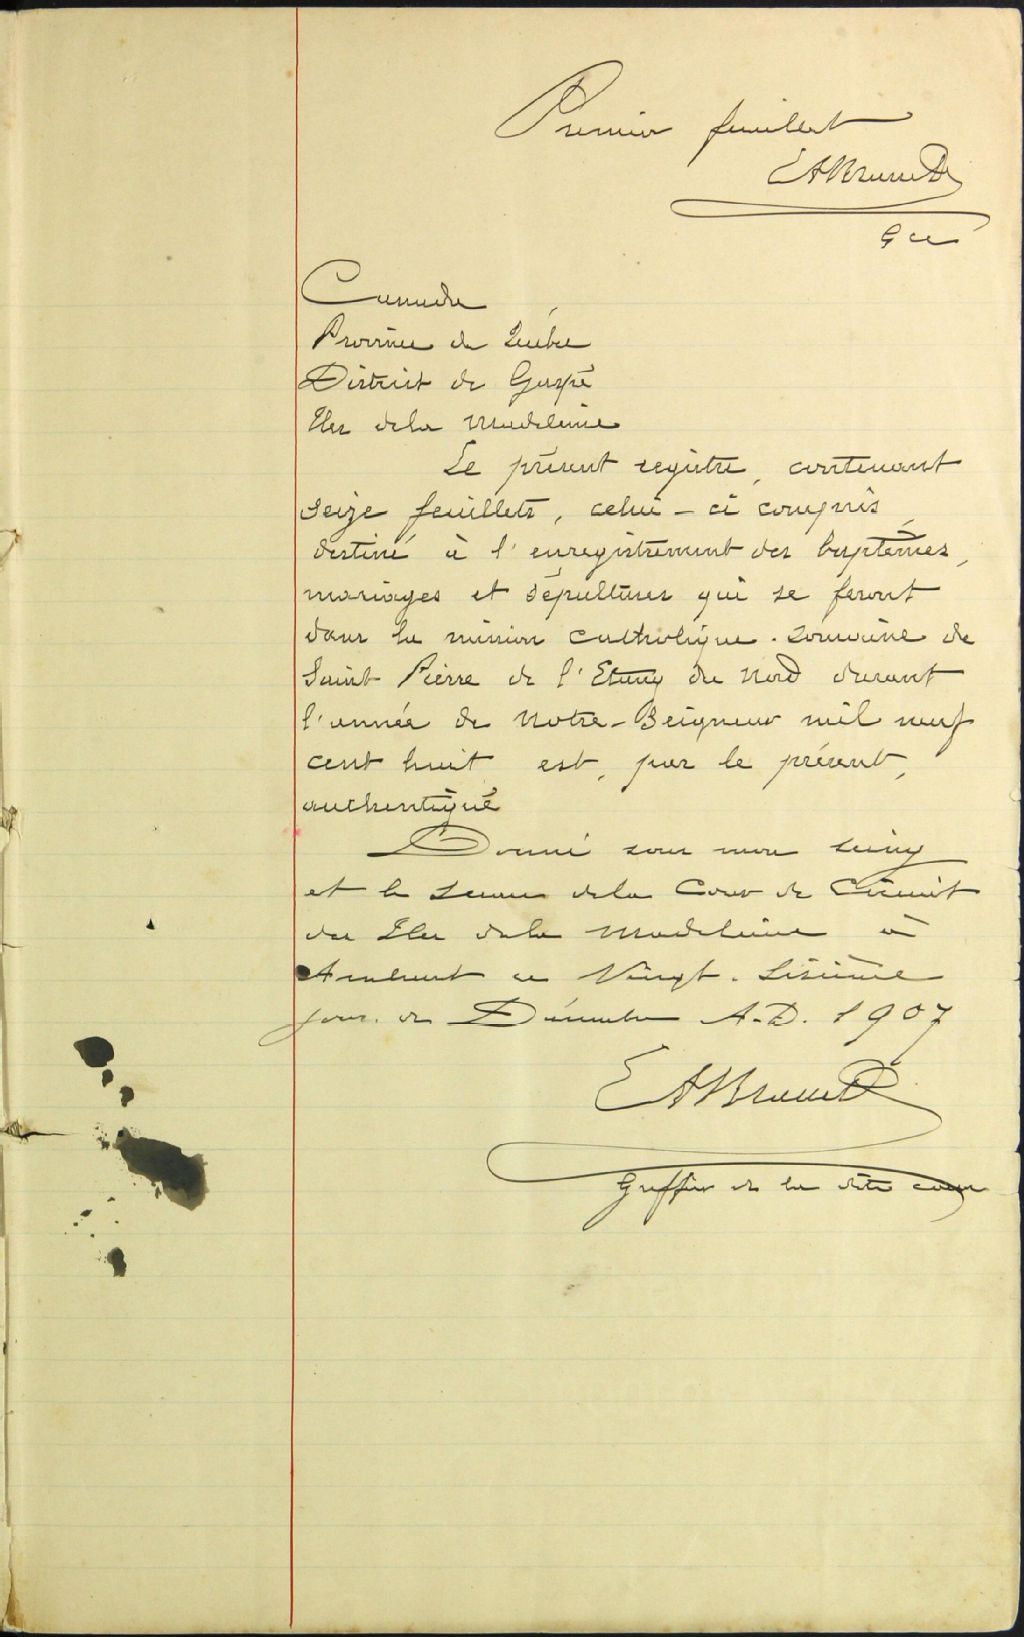 Premier feuillet
EABrunet
Gcc
Canada
Province de Québec
District de Gaspé
Iles de la Madeleine
Le présent registre, contenant
seize feuillets, celui-ci compris,
destiné à l'enregistrement des baptêmes,
mariages et sépultures qui se feront
dans la mission catholique-romaine de
Saint Pierre de l'Etang du Nord durant
l'année de Notre-Seigneur mil neuf
cent huit est, par le présent,
authentiqué
Donné sous mon seing
et le sceau de la Cour de Circuit
des Iles de la Madeleine à
Amherst ce Vingt-sixième
jour de Décembre A.D. 1907
EABrunet
Greffier de la dite cour